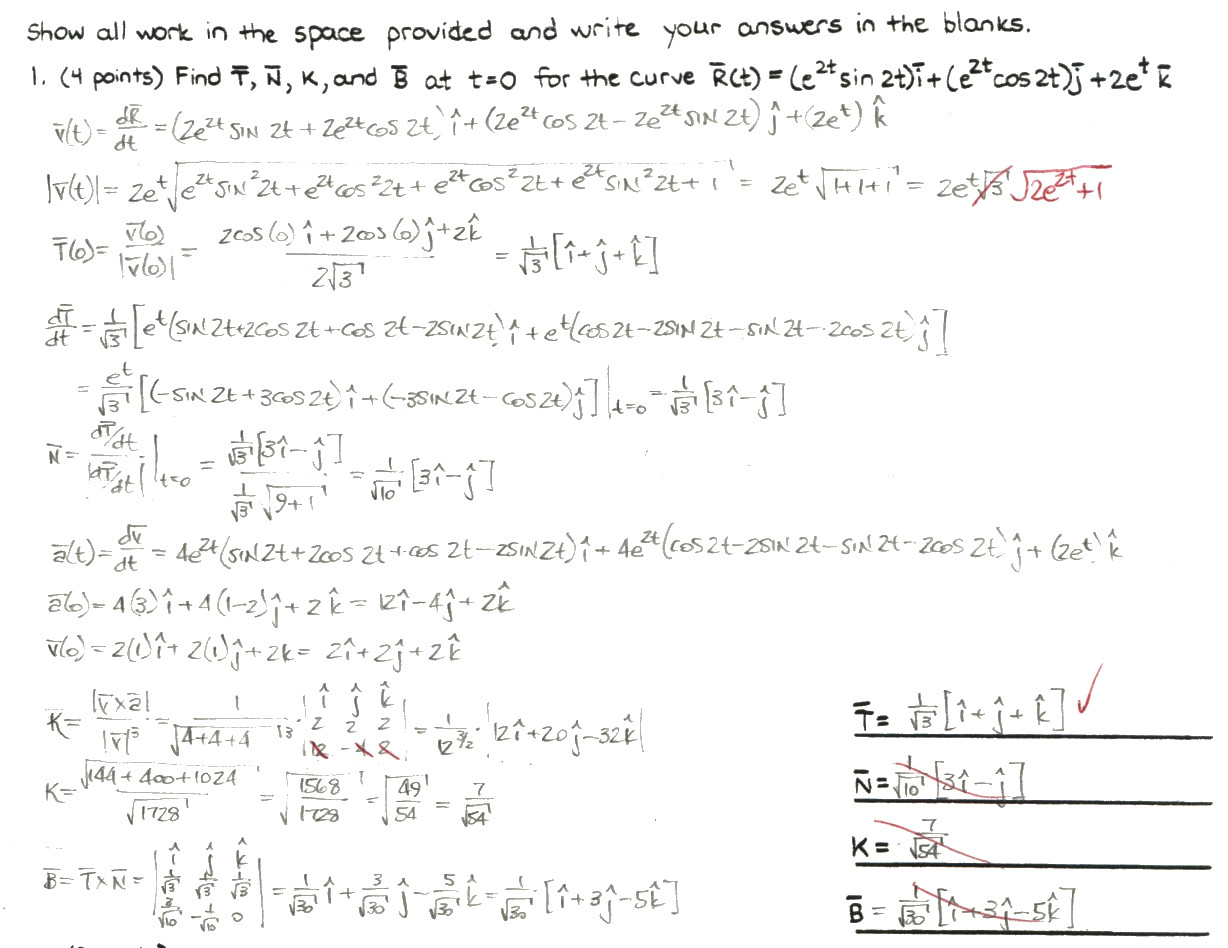 Show all work in the space provided and write your answers in the blanks.
1. (4 points) Find T̄, N̄, K, and B̄ at t=0 for the curve R̄(t) = (e^2t sin 2t)ī+(e^2t cos 2t)j̄ +2e^t k̄
v̄(t)= dR̄/dt =(2e^2t SIN 2t + 2e^2t cos 2t) î+(2e^2t cos 2t - 2e^2t SIN 2t) ĵ +(2e^t) k̂
|v̄(t)|= 2e^t √(e^2t SIN²2t+e^2t cos²2t + e^2t cos²2t + e^2t SIN²2t+1) = 2e^t √(1+1+1) = 2e^t √3 √(2e^2t+1)
T̄(0)= v̄(0)/|v̄(0)| = (2cos(0) î+2cos(0) ĵ+2k̂)/(2√3) = 1/√3 [î+ĵ+k̂]
dT̄/dt = 1/√3 [e^t(SIN 2t+2cos 2t+cos 2t-2SIN 2t) î + e^t(cos 2t-2SIN 2t-SIN 2t-2cos 2t) ĵ]
= e^t/√3 [(-SIN 2t+3cos 2t) î+(-3SIN 2t-cos 2t) ĵ]|t=0 = 1/√3 [3î-ĵ]
N̄= (dT̄/dt)/|dT̄/dt| |t=0 = (1/√3 [3î-ĵ])/(1/√3 √(9+1)) = 1/√10 [3î-ĵ]
ā(t)= dv̄/dt = 4e^2t(SIN 2t+2cos 2t+cos 2t-2SIN 2t) î + 4e^2t(cos 2t-2SIN 2t-SIN 2t-2cos 2t) ĵ + (2e^t) k̂
ā(0)=4(3) î+4(1-2) ĵ+2 k̂ = 12î-4ĵ+2k̂
v̄(0) = 2(1)î+ 2(1)ĵ+2k= 2î+2ĵ+2k̂
K= |v̄×ā|/|v̄|³ = 1/√(4+4+4)³ · |î ĵ k̂; 2 2 2; 12 -4 2| = 1/12^(3/2) · |12î+20ĵ-32k̂|
K= √(144+400+1024)/√1728 = √(1568/1728) = √(49/54) = 7/√54
B̄= T̄×N̄ = |î ĵ k̂; 1/√3 1/√3 1/√3; 3/√10 -1/√10 0| = 1/√30 î + 3/√30 ĵ - 5/√30 k̂ = 1/√30 [î+3ĵ-5k̂]
T̄= 1/√3 [î+ĵ+k̂] ✓
N̄= 1/√10 [3î-ĵ]
K= 7/√54
B̄ = 1/√30 [î+3ĵ-5k̂]